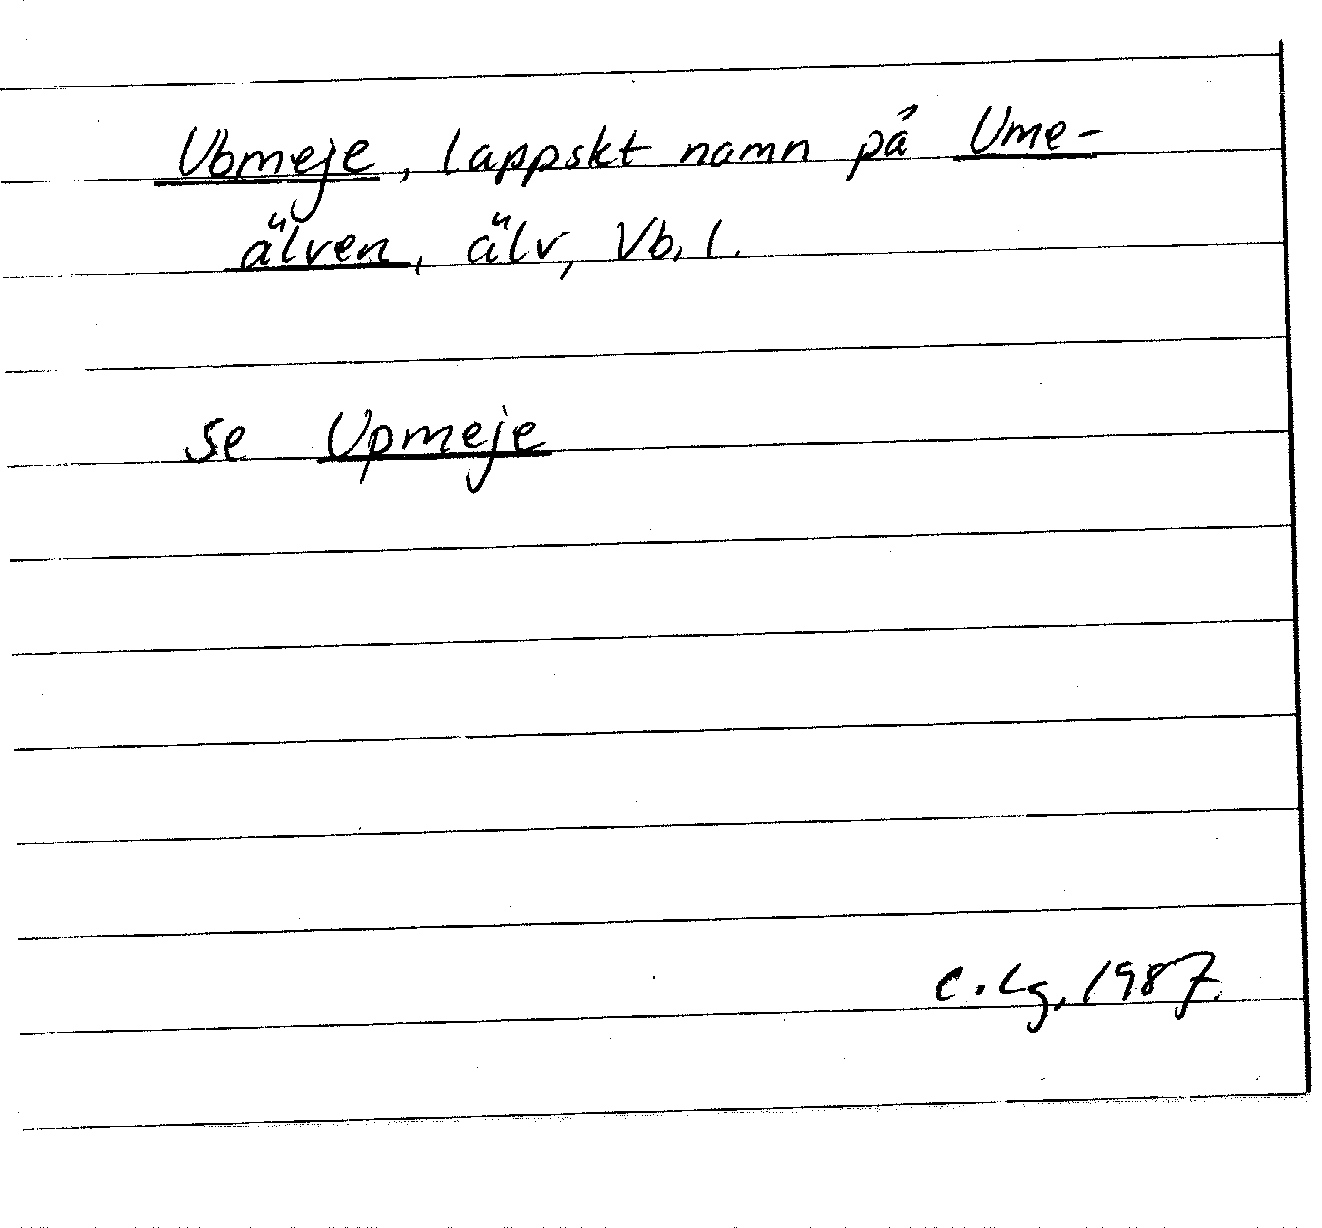 Ubmeje, lappskt namn på Ume-
älven, älv, Vb. l.
se Upmeje
C. Lg, 1987.